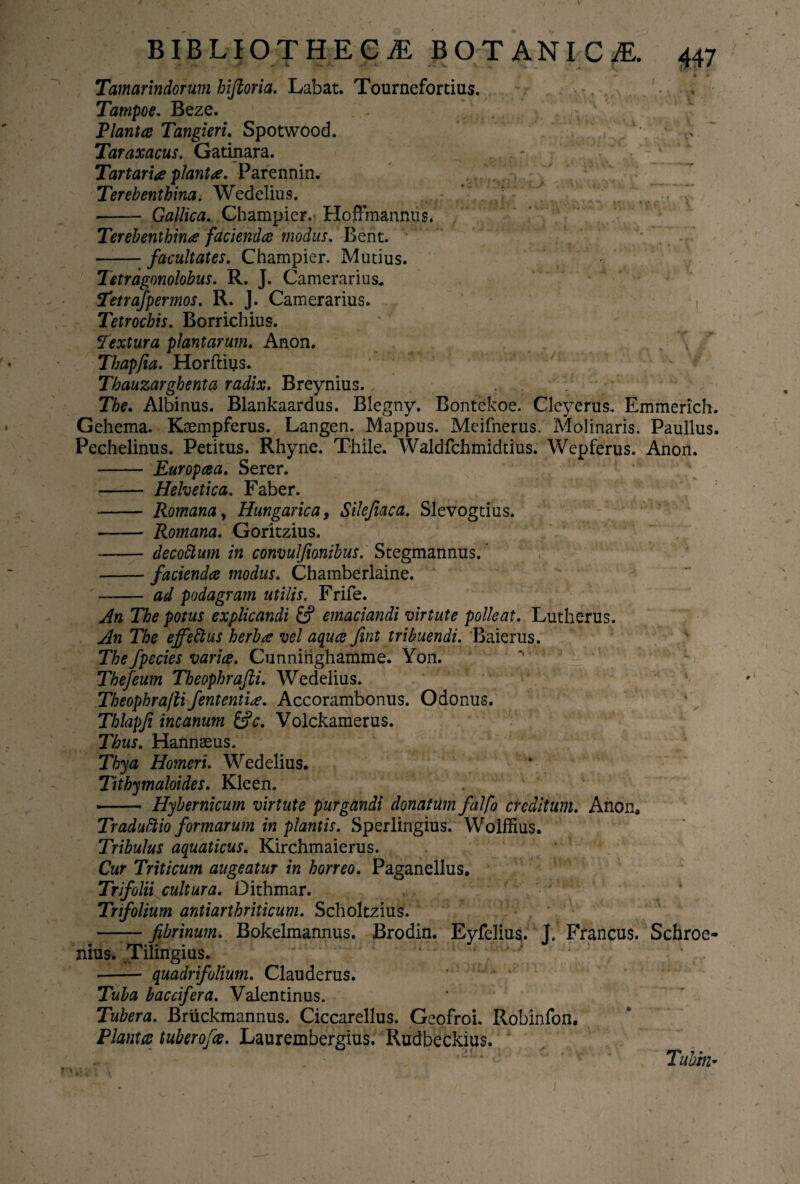 BIBLIOTHECÆ BOTANICÆ. 447
Tamarindorum hiſtoria. Labat. Tournefortius.
Tampoe. Beze.
Plantæ Tangieri. Spotwood.
Taraxacus. Gatinara.
Tartariæ plantæ. Parennin.
Terebenthina. Wedelius.
—— Gallica. Champier. Hoffmannus.
Terebenthinæ faciendæ modus. Bent.
—— facultates. Champier. Mutius.
Tetragonolobus. R. J. Camerarius.
Tetraſpermos. R. J. Camerarius.
Tetrochis. Borrichius.
Textura plantarum. Anon.
Thapſia. Horſtius.
Thauzarghenta radix. Breynius.
The. Albinus. Blankaardus. Blegny. Bontekoe. Cleyerus. Emmerich.
Gehema. Kæmpferus. Langen. Mappus. Meiſnerus. Molinaris. Paullus.
Pechelinus. Petitus. Rhyne. Thile. Waldſchmidtius. Wepferus. Anon.
—— Europæa. Serer.
—— Helvetica. Faber.
—— Romana, Hungarica, Sileſiaca. Slevogtius.
—— Romana. Goritzius.
—— decoctum in convulſionibus. Stegmannus.
—— faciendæ modus. Chamberlaine.
—— ad podagram utilis. Friſe.
An The potus explicandi & emaciandi virtute polleat. Lutherus.
An The effectus herbæ vel aquæ ſint tribuendi. Baierus.
The ſpecies variæ. Cunninghamme. Yon.
Theſeum Theophraſti. Wedelius.
Theophraſti ſententiæ. Accorambonus. Odonus.
Thlapſi incanum &c. Volckamerus.
Thus. Hannæus.
Thya Homeri. Wedelius.
Tithymaloides. Kleen.
—— Hybernicum virtute purgandi donatum falſo creditum. Anon.
Traductio formarum in plantis. Sperlingius. Wolffius.
Tribulus aquaticus. Kirchmaierus.
Cur Triticum augeatur in horreo. Paganellus.
Trifolii cultura. Dithmar.
Trifolium antiarthriticum. Scholtzius.
—— fibrinum. Bokelmannus. Brodin. Eyſelius. J. Francus. Schroe-
nius. Tilingius.
—— quadrifolium. Clauderus.
Tuba baccifera. Valentinus.
Tubera. Brückmannus. Ciccarellus. Geofroi. Robinſon.
Plantæ tuberoſæ. Laurembergius. Rudbeckius.
Tubin-